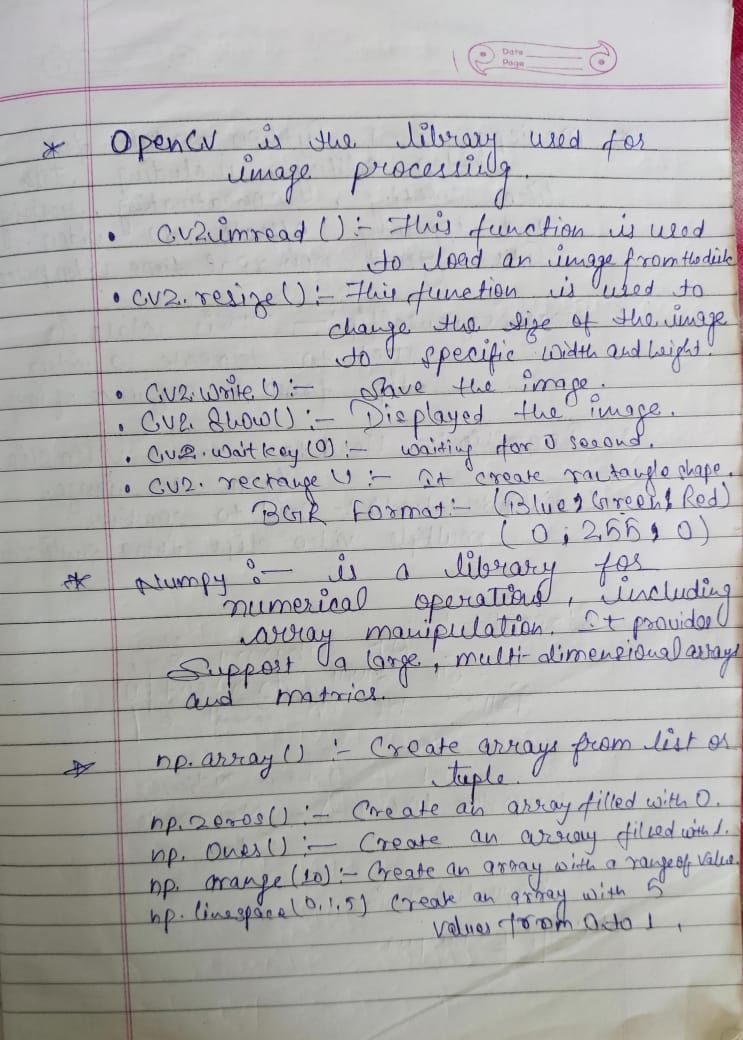 Date
Page
* OpenCV is the library used for
image processing.
• CV2.imread () :- This function is used
to load an image from the disk
• CV2. resize () :- This function is used to
change the size of the image
to specific width and height.
• CV2. write () :- Save the image.
• CV2. Show() :- Displayed the image.
• CV2. wait key (0) :- waiting for 0 second.
• CV2. rectange () :- It create ractangle shape.
BGR Format :- (Blue, Green, Red)
(0, 255, 0)
* Numpy :- is a library for
numerical operations, including
array manipulation. It provides
Support a large, multi-dimensional arrays
and matrics.
np. array () :- Create arrays from list or
tuple.
np. zeros() :- Create an array filled with 0.
np. Ones() :- Create an array filled with 1.
np. arange (10) :- Create an array with a range of value.
np. linespace (0, 1, 5) Create an array with 5
values from 0 to 1.